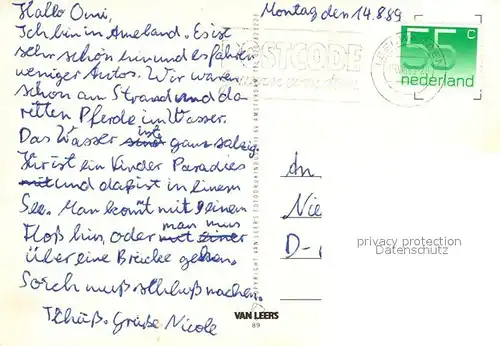 Hallo Omi,
Montag den 14.8.89
Ich bin in Ameland. Es ist
sehr schön hir und es fahren
weniger Autos. Wir waren
schon am Strand und da
retten Pferde im Wasser.
Das Wasser sind iste ganz salzig.
Hir ist ein Kinder Paradies
mit und daß ist in einem
See. Man komt mit einen
Floß hin, oder man mus
über eine Brücke gehen.
Sorch muß schluß machen.
Tchüß. Grüße Nicole
POSTCODE
55 c
nederland
An
Nie
D-
privacy protection
Datenschutz
COPYRIGHT VAN LEERS FOTODRUKINDUSTRIE AMSTERDAM
VAN LEERS
89